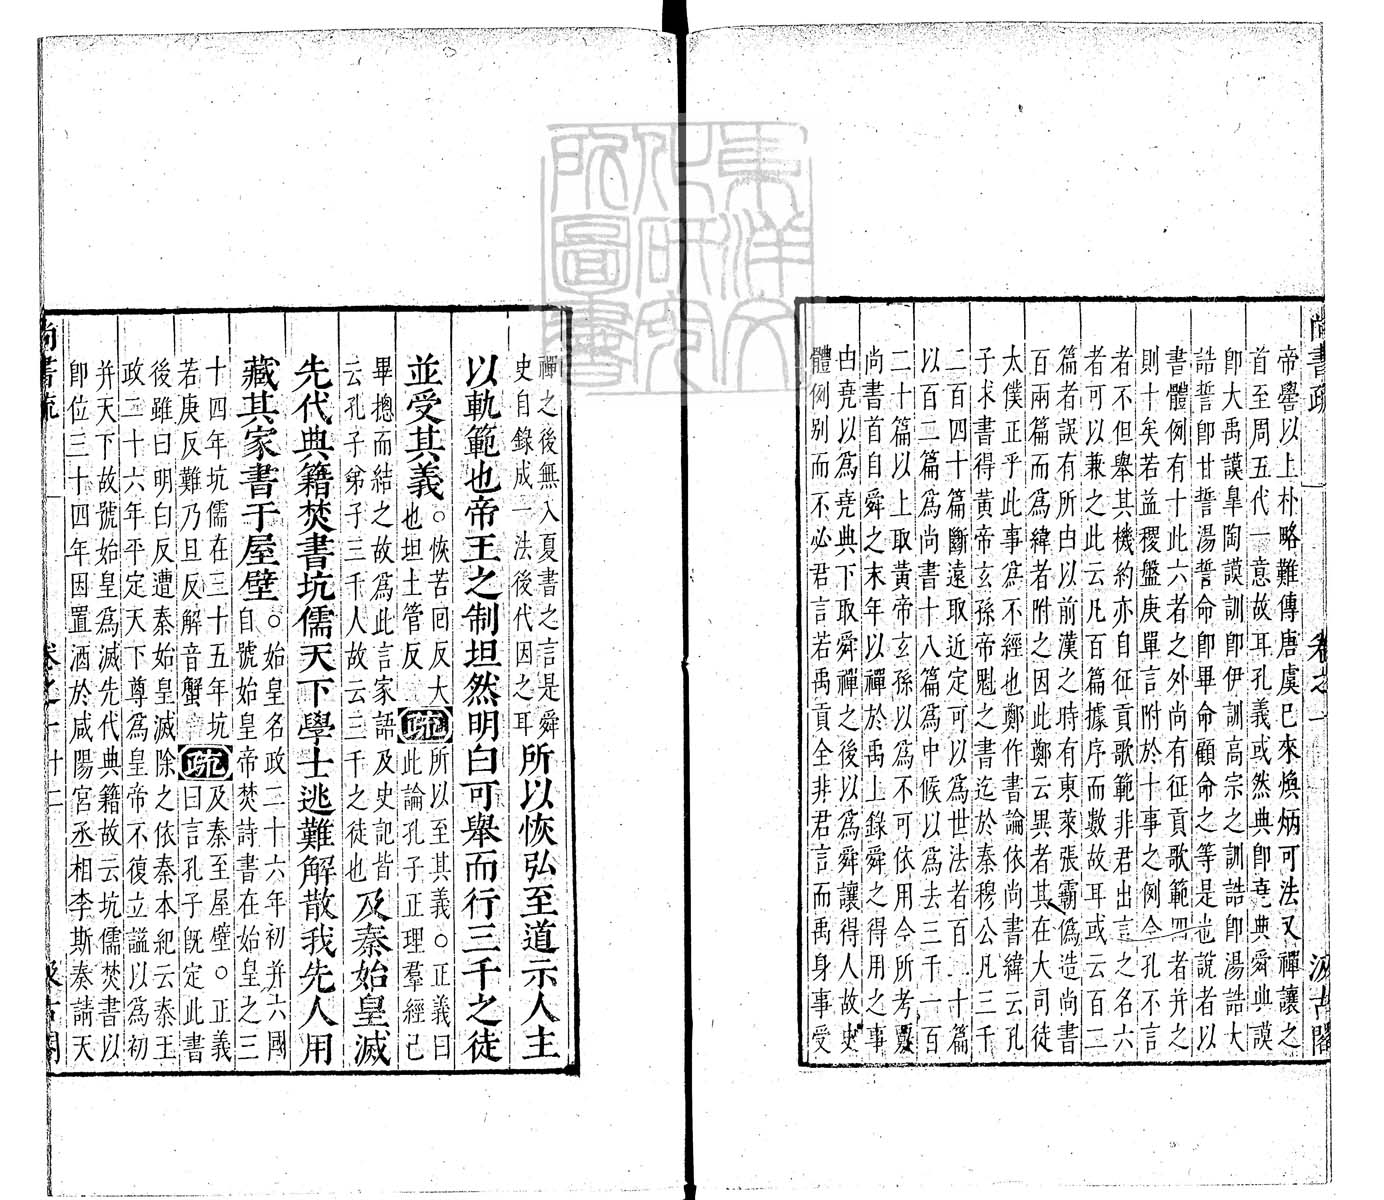 尚書疏 卷之一 汲古閣
帝嚳以上朴略難傳唐虞已來煥炳可法又禪讓之
首至周五代一意故耳孔義或然典卽堯典舜典謨
卽大禹謨臯陶謨訓卽伊訓高宗之訓誥卽湯誥大
誥誓卽甘誓湯誓命卽畢命顧命之等是也說者以
書體例有十此六者之外尚有征貢歌範四者并之
則十矣若益稷盤庚單言附於十事之例今孔不言
者不但舉其機約亦自征貢歌範非君出言之名六
者可以兼之此云凡百篇據序而數故耳或云百二
篇者誤有所由以前漢之時有東萊張霸僞造尚書
百兩篇而爲緯者附之因此鄭云異者其在大司徒
太僕正乎此事爲不經也鄭作書論依尚書緯云孔
子求書得黃帝玄孫帝魁之書迄於秦穆公凡三千
二百四十篇斷遠取近定可以爲世法者百二十篇
以百二篇爲尚書十八篇爲中候以爲去三千一百
二十篇以上取黃帝玄孫以爲不可依用今所考覈
尚書首自舜之末年以禪於禹上錄舜之得用之事
由堯以爲堯典下取舜禪之後以爲舜讓得人故史
體例別而不必君言若禹貢全非君言而禹身事受
東洋文化研究所圖書
禪之後無入夏書之言是舜
史自錄成一法後代因之耳
所以恢弘至道示人主
以軌範也帝王之制坦然明白可舉而行三千之徒
並受其義
○恢苦回反大
也坦土管反
疏
所以至其義○正義曰
此論孔子正理羣經已
畢摠而結之故爲此言家語及史記皆
云孔子弟子三千人故云三千之徒也
及秦始皇滅
先代典籍焚書坑儒天下學士逃難解散我先人用
藏其家書于屋壁
○始皇名政二十六年初并六國
自號始皇帝焚詩書在始皇之三
十四年坑儒在三十五年坑
若庚反難乃旦反解音蟹
疏
及秦至屋壁○正義
曰言孔子旣定此書
後雖曰明白反遭秦始皇滅除之依秦本紀云秦王
政二十六年平定天下尊爲皇帝不復立謚以爲初
并天下故號始皇爲滅先代典籍故云坑儒焚書以
卽位三十四年因置酒於咸陽宮丞相李斯奏請天
尚書疏 卷之一 十二 汲古閣